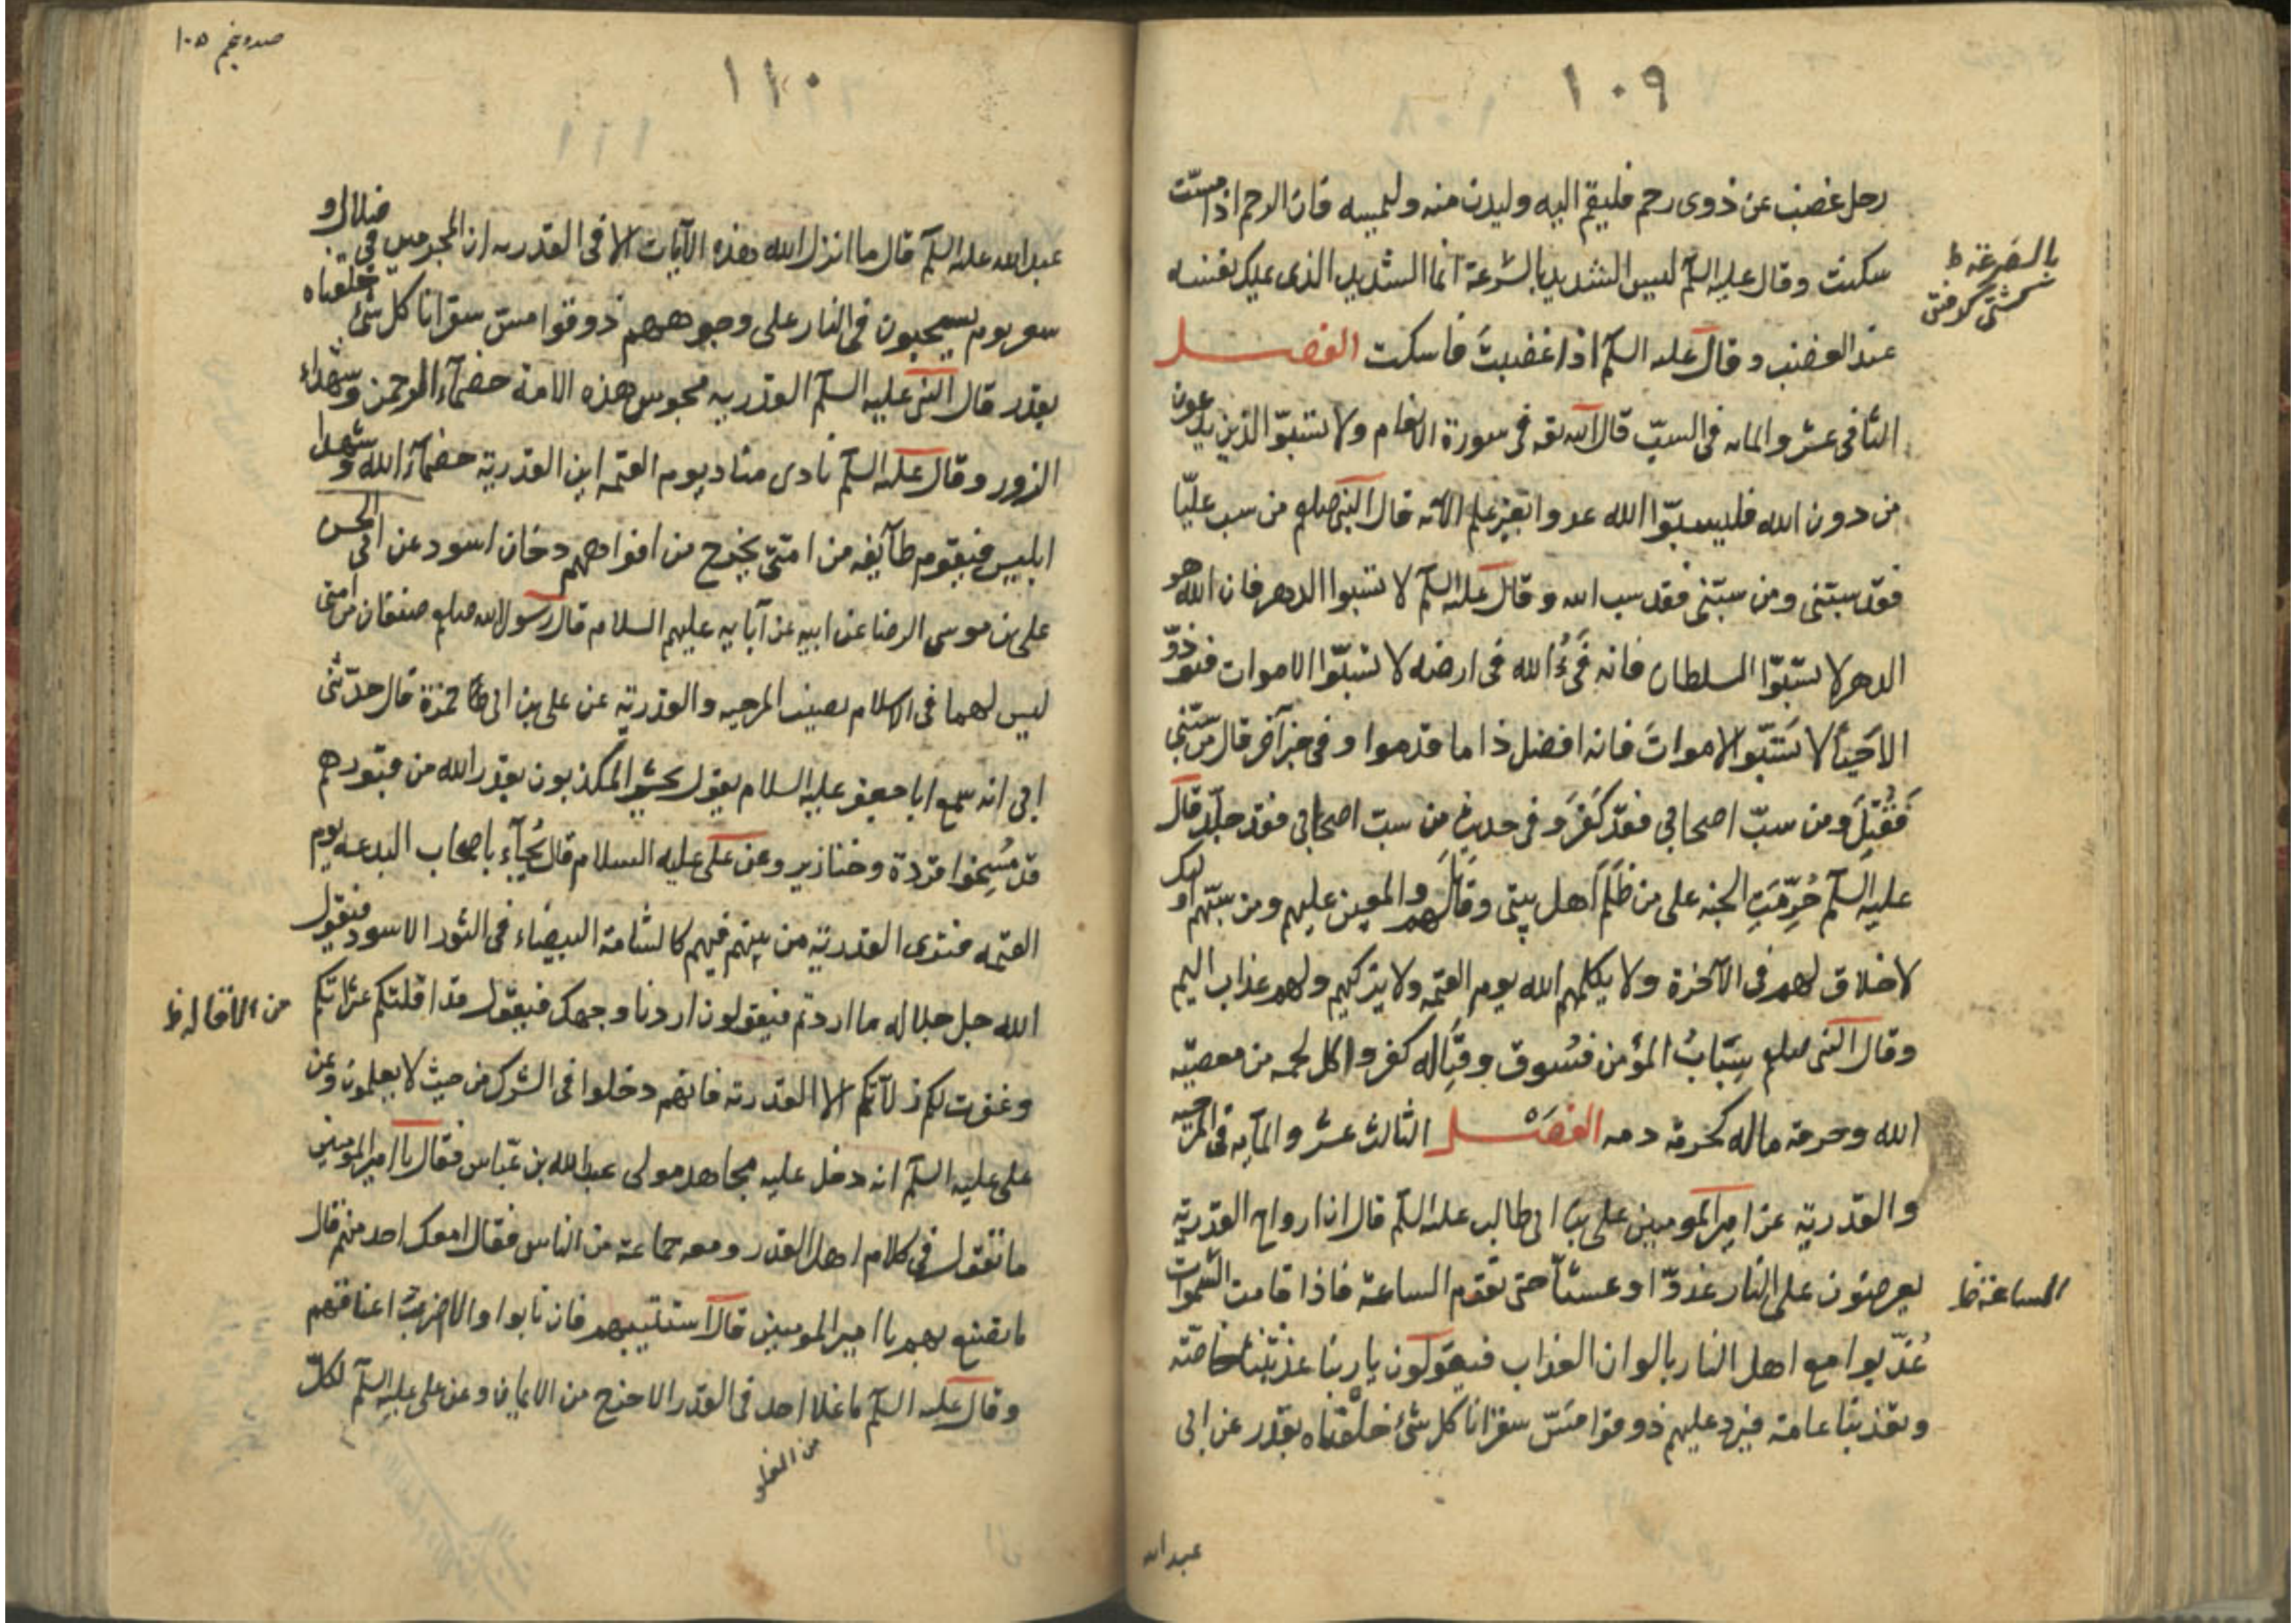 ١٠٩
رجل غضب عن ذوى رحم فليقم اليه وليدن منه وليمسه فان الرحم اذا مسّت
سكنت وقال عليه السلم ليس الشديد بالشرعة انما الشديد الذى يملك نفسه
بالصرعة ظ
كشتى گرفتن
عند الغضب وقال عليه السلم اذا غضبتَ فاسكت الفصل
الثانى عشر والمايه فى السبّ قال الله تعه فى سورة الانعام ولا تسبّوا الذين يدعون
من دون الله فليسبّوا الله عدوا بغير علم الآيه قال النبى صلعم من سب عليّا
فقد سبّنى ومن سبّنى فقد سب الله وقال عليه السلم لا تسبوا الدهر فان الله هو
الدهر لا تسبّوا السلطان فانه فَىءُ الله فى ارضه لا تسبّوا الاموات فتوذوّ
الاحَيأَ لا تَسُبّوا الاموات فانه افضل ذا ما قدموا وفى خبر آخر قال من سبّنى
فَقُتِلَ ومن سبّ اصحابى فقد كَفَرَ وفى حديث مِن سبّ اصحابى فقد جلّد قال
عليه السلم حُرِّمَتِ الجنه على من ظَلَمَ اهل بيتى وقاتلهم والمعين عليهم ومن سبّهم اولئک
لا خلاق لهم فى الآخرة ولا يكلمهم الله يوم القيمه ولا يزكيهم ولهم عذاب اليم
وقال النبى صلعم سِبَابُ المؤمن فسُوق وقتاله كفر واكل لحمه من معصيّه
الله وحرمة ماله كحرمة دمه الفصل الثالث عشر والمايه فى المرجيه
والقدريّه عن امير المومنين على بن ابى طالب عليه السلم قال ان ارواح القدريّه
يعرضون على النار غدوّا وعشيّا حتى تقوم الساعة فاذا قامت السموات
الساعة ظ
عُذّبوا مع اهل النار بالوان العذاب فيقولون يا ربنا عذبتنا خاصّه
وتعذبنا عامة فيرد عليهم ذوقوا مسّ سقر انا كل شئ خلقناه بقدر عن ابى
عبدالله
١١٠
صد و پنجم ١٠٥
عبدالله عليه السلم قال ما انزل الله هذه الآيات الا فى القدريه ان المجرمين فى ضلال و
سعر يوم يسحبون فى النار على وجوههم ذوقوا مسّ سقر انا كل شئ خلقناه
بقدر قال النبى عليه السلم القدريه مجوس هذه الامة خصمآء الرحمن وشهداء
الزور وقال عليه السلم نادى مناد يوم القيمه اين القدرية خصمآء الله وشهدا
ابليس فيقوم طآيفه من امتى يخرج من افواههم دخان اسود عن ابى الحسن
على بن موسى الرضا عن ابيه عن آبايه عليهم السلام قال رسول الله صلعم صنفان من امتى
ليس لهما فى الاسلام نصيب المرجيه والقدريّه عن على بن ابى حمزة قال حدّثنى
ابى انه سمع ابا جعفر عليه السلام يقول يحشر المكذبون بقدر الله من قبورهم
قد مُسِخوا قردة وخنازير وعن على عليه السلام قال يُجآء باصحاب البدعه يوم
القيمه فترى القدريّه من بينهم فيهم كالشامة البيضاء فى الثور الاسود فيقول
الله جل جلاله ما اردتم فيقولون اردنا وجهك فيقول قد اقلتكم عثراتكم
من الاقاله ظ
وغفرت لكم زلّاتكم الا القدريه فانهم دخلوا فى الشرك من حيث لا يعلمون وعن
على عليه السلم انه دخل عليه مجاهد مولى عبدالله بن عبّاس فقال يا امير المومنين
ما تقول فى كلام اهل القدر ومعه جماعة من الناس فقال امعك احد منهم قال
ما تصنع بهم يا امير المومنين قال استتيبهم فان تابوا والا ضربت اعناقهم
وقال عليه السلم ما غلا احد فى القدر الا خرج من الايمان وعن على عليه السلم لكلّ
من الغلو